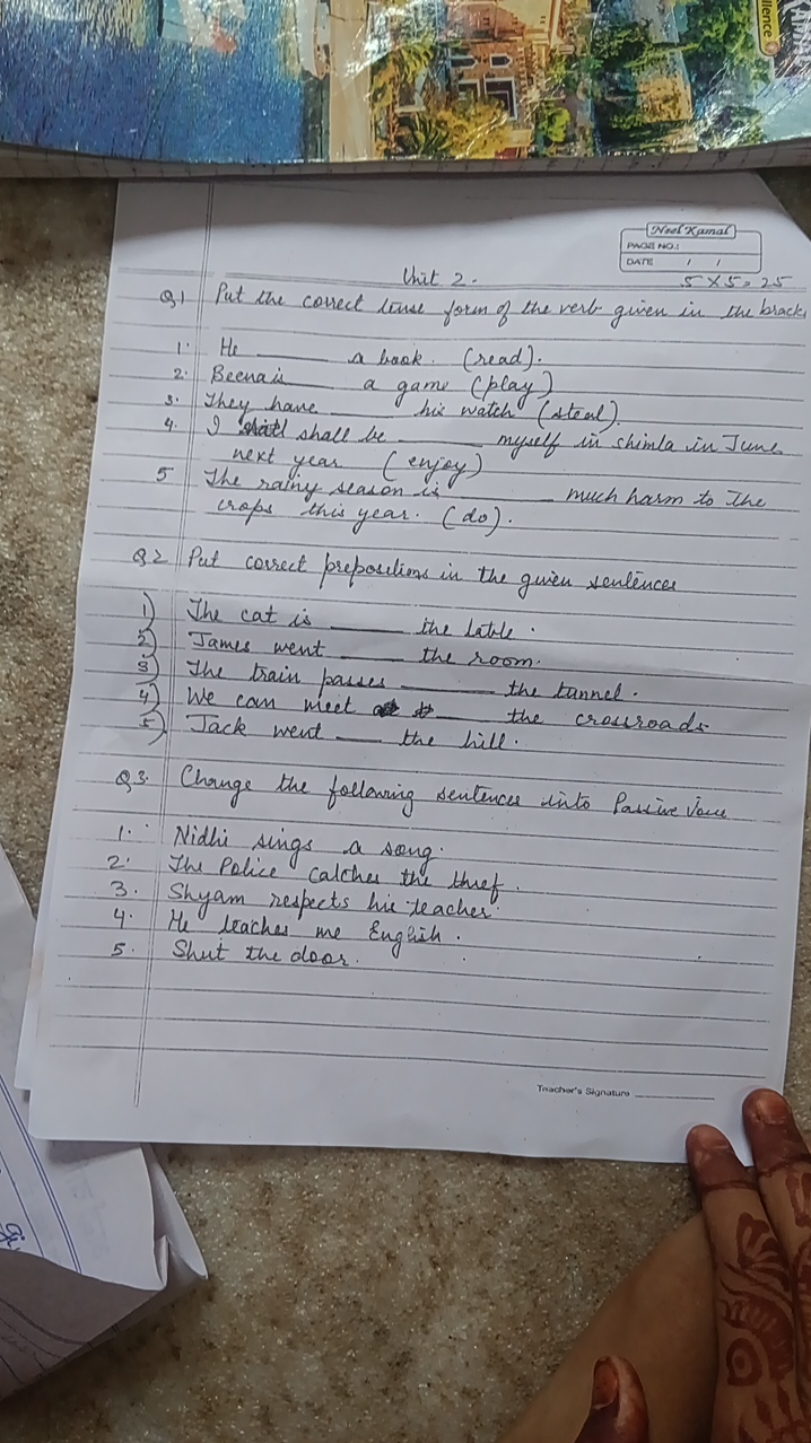 llence
Neel Kamal
PAGE NO.:
DATE / /
Unit 2.
5 X 5 = 25
Q1 Put the correct tense form of the verb given in the brack
1. He ______ a book. (read).
2. Beena is ______ a game (play)
3. They have ______ his watch (steal).
4. I shall be ______ myself in shimla in June
next year (enjoy)
5 The rainy season is ______ much harm to The
crops this year. (do).
Q2 Put correct prepositions in the given sentences
1) The cat is ______ the table.
2) James went ______ the room.
3) The train passes ______ the tunnel.
4) We can meet ______ the crossroads
5) Jack went ____ the hill.
Q3. Change the following sentences into Passive Voice
1. Nidhi sings a song.
2. The Police catches the thief.
3. Shyam respects his teacher.
4. He teaches me English.
5. Shut the door.
Teacher's Signature ____________